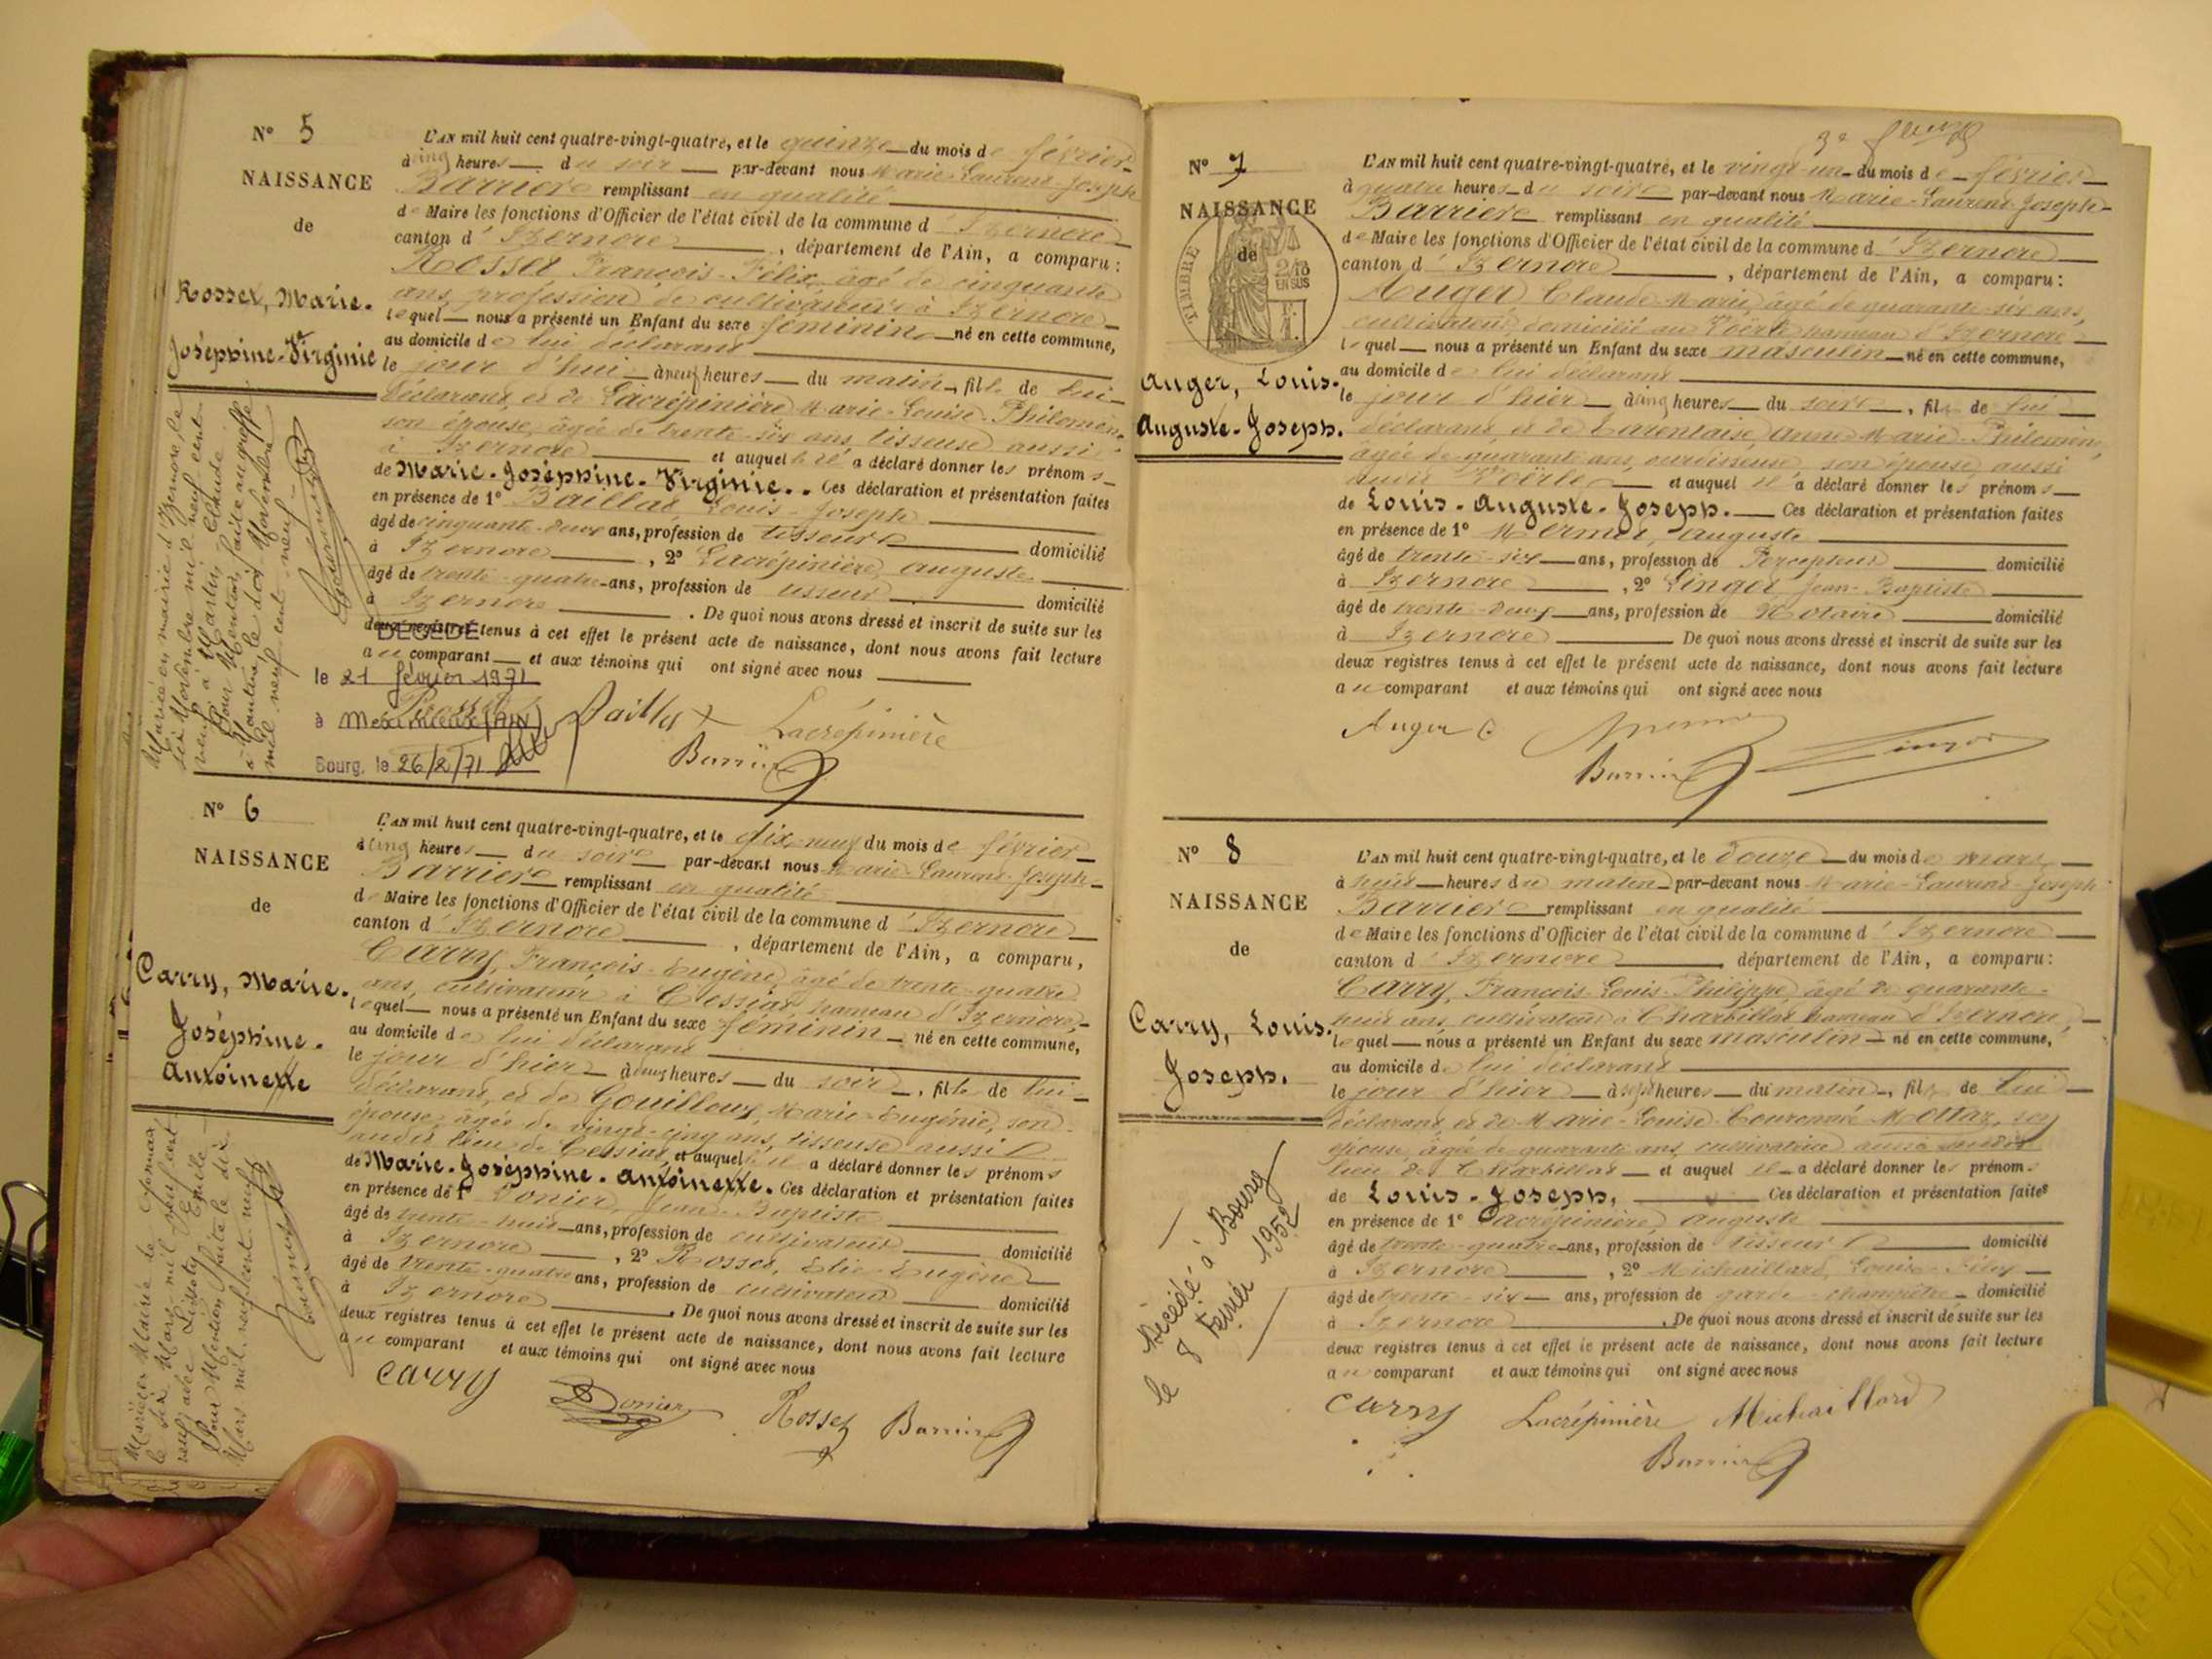 N° 5
NAISSANCE
de
Rosset, Marie-
Joséphine-Virginie
L'AN mil huit cent quatre-vingt-quatre, et le quinze du mois de février
à cinq heures du soir par-devant nous Marie-Laurent-Joseph
Barrière remplissant en qualité
de Maire les fonctions d'Officier de l'état civil de la commune d'Izernore
canton d'Izernore, département de l'Ain, a comparu :
Rosset François-Félix, âgé de cinquante
ans, profession de cultivateur à Izernore
lequel nous a présenté un Enfant du sexe féminin né en cette commune,
au domicile de lui déclarant
le jour d'hui à neuf heures du matin, fille de lui
déclarant, et de Lacrépinière Marie-Louise-Philomène
son épouse, âgée de trente-six ans, tisseuse aussi
à Izernore et auquel il a déclaré donner les prénoms
de Marie-Joséphine-Virginie. Ces déclaration et présentation faites
en présence de 1° Baillat, Louis-Joseph
âgé de cinquante-deux ans, profession de tisseur domicilié
à Izernore, 2° Lacrépinière, Auguste
âgé de trente-quatre ans, profession de tisseur domicilié
à Izernore. De quoi nous avons dressé et inscrit de suite sur les
deux registres tenus à cet effet le présent acte de naissance, dont nous avons fait lecture
au comparant et aux témoins qui ont signé avec nous
DÉCÉDÉ
le 21 février 1971
à Meximieux (Ain)
Bourg, le 26/2/71
Rosset Baillat Lacrépinière
Barrière
Mariée en mairie d'Izernore, le
six Novembre mil neuf cent
neuf à Martin, Claude
Pour Mention, faite au greffe
à Nantua, le dix Novembre
mil neuf cent neuf
N° 6
NAISSANCE
de
Carry, Marie-
Joséphine-
Antoinette
L'AN mil huit cent quatre-vingt-quatre, et le dix-neuf du mois de février
à cinq heures du soir par-devant nous Marie-Laurent-Joseph
Barrière remplissant en qualité
de Maire les fonctions d'Officier de l'état civil de la commune d'Izernore
canton d'Izernore, département de l'Ain, a comparu,
Carry, François-Eugène, âgé de trente-quatre
ans, cultivateur à Cessiat, hameau d'Izernore,
lequel nous a présenté un Enfant du sexe féminin né en cette commune,
au domicile de lui déclarant
le jour d'hier à deux heures du soir, fille de lui
déclarant, et de Gouilloux, Marie-Eugénie, son
épouse, âgée de vingt-cinq ans, tisseuse aussi
audit lieu de Cessiat, et auquel il a déclaré donner les prénoms
de Marie-Joséphine-Antoinette. Ces déclaration et présentation faites
en présence de 1° Donier, Jean-Baptiste
âgé de trente-huit ans, profession de cultivateur
à Izernore, 2° Rosset, Elie-Eugène domicilié
âgé de trente-quatre ans, profession de cultivateur
à Izernore. De quoi nous avons dressé et inscrit de suite sur les domicilié
deux registres tenus à cet effet le présent acte de naissance, dont nous avons fait lecture
au comparant et aux témoins qui ont signé avec nous
Carry Donier Rosset Barrière
le six Mars mil neuf cent
neuf avec Lissoty Emile
Pour Mention faite le dix
Mars mil neuf cent neuf
N° 7
NAISSANCE
de
TIMBRE
2/10
EN SUS
Auger, Louis-
Auguste-Joseph.
L'AN mil huit cent quatre-vingt-quatre, et le vingt-un du mois de février
à quatre heures du soir par-devant nous Marie-Laurent-Joseph
Barrière remplissant en qualité
de Maire les fonctions d'Officier de l'état civil de la commune d'Izernore
canton d'Izernore, département de l'Ain, a comparu :
Auger Claude-Marie, âgé de quarante-six ans,
cultivateur, domicilié au Voërle hameau d'Izernore
lequel nous a présenté un Enfant du sexe masculin né en cette commune,
au domicile de lui déclarant
le jour d'hier à cinq heures du soir, fils de lui
déclarant, et de Tarentaise, Anne-Marie-Philomène,
âgée de quarante ans, ourdisseuse, son épouse, aussi
audit Voërle et auquel il a déclaré donner les prénoms
de Louis-Auguste-Joseph. Ces déclaration et présentation faites
en présence de 1° Mermet, Auguste
âgé de trente-six ans, profession de Percepteur domicilié
à Izernore, 2° Singer, Jean-Baptiste
âgé de trente-deux ans, profession de Notaire domicilié
à Izernore De quoi nous avons dressé et inscrit de suite sur les
deux registres tenus à cet effet le présent acte de naissance, dont nous avons fait lecture
au comparant et aux témoins qui ont signé avec nous
Auger C
Barrière
N° 8
NAISSANCE
de
Carry, Louis-
Joseph.
L'AN mil huit cent quatre-vingt-quatre, et le douze du mois de mars
à huit heures du matin par-devant nous Marie-Laurent-Joseph
Barrière remplissant en qualité
de Maire les fonctions d'Officier de l'état civil de la commune d'Izernore
canton d'Izernore département de l'Ain, a comparu :
Carry, François-Louis-Philippe, âgé de quarante-
huit ans, cultivateur à Charbillat hameau d'Izernore,
lequel nous a présenté un Enfant du sexe masculin né en cette commune,
au domicile de lui déclarant
le jour d'hier à sept heures du matin, fils de lui
déclarant, et de Marie-Louise-Couronnée Mottaz, son
épouse, âgée de quarante ans, cultivatrice aussi audit
lieu de Charbillat et auquel il a déclaré donner les prénoms
de Louis-Joseph, Ces déclaration et présentation faites
en présence de 1° Lacrépinière, Auguste
âgé de trente-quatre ans, profession de tisseur domicilié
à Izernore, 2° Michaillard, Louis-Félix
âgé de trente-six ans, profession de garde-champêtre domicilié
à Izernore. De quoi nous avons dressé et inscrit de suite sur les
deux registres tenus à cet effet le présent acte de naissance, dont nous avons fait lecture
au comparant et aux témoins qui ont signé avec nous
Carry Lacrépinière Michaillard
Barrière
Décédé à Bourg
le 8 Février 1952